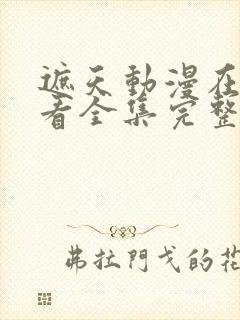 遮天動漫在
看全集完整
弗拉門戈的花